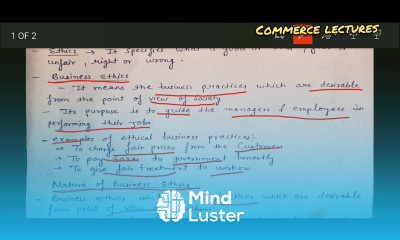 COMMERCE LECTURES
1 OF 2
Ethics → It specifies what is good or
unfair, right or wrong.
- Business Ethics
- It means the business practices which are desirable
from the point of view of society
- Its purpose is to guide the managers & employees in
performing their jobs
- examples of ethical business practices:
→ To charge fair prices from the customers
→ To pay taxes to government honestly
→ To give fair treatment to workers
Nature of Business Ethics
- Business ethics which are desirable
from point of view of
Mind
Luster